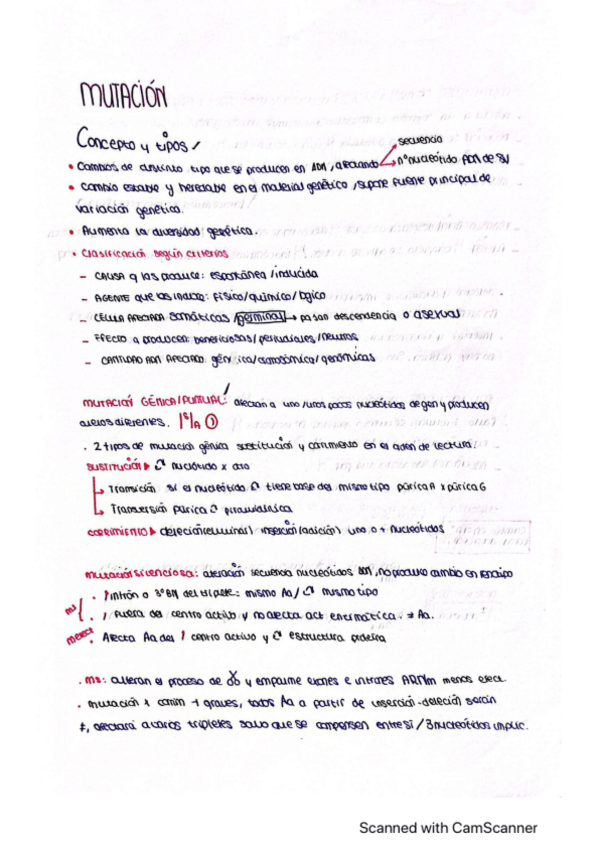 MUTACIÓN
Concepto y tipos
secuencia
• Cambios de distinto tipo que se producen en ADN, afectando nº nucleótido ADN de SV
• Cambio estable y heredable en el material genético, supone fuente principal de
variación genética.
• Aumenta la diversidad genética.
• Clasificación según criterios
- CAUSA q las produce: espontánea/inducida
- AGENTE que las induce: físico/químico/bgico
- CÉLULA AFECTADA somáticas/germinal → pasan descendencia o asexual
- EFECTO a producen: beneficiosas/perjudiciales/neutras
- CANTIDAD ADN AFECTADO: génica/cromosómica/genómicas
MUTACIÓN GÉNICA/PUNTUAL: afectan a uno/unos pocos nucleótidos de gen y producen
alelos diferentes.
• 2 tipos de mutación génica sustitución y corrimiento en el orden de lectura:
SUSTITUCIÓN nucleótido x otro
Transición si el nucleótido tiene base del mismo tipo púrica A x púrica G
Transversión púrica pirimidínica
CORRIMIENTO deleción(eliminan) inserción(adición) uno o + nucleótidos
mutación silenciosa: alteración secuencia nucleótidos ADN, no produce cambio en fenotipo
ms • intrón o 3º BN del triplete: mismo Aa/ mismo tipo
• fuera del centro activo y no afecta act enzimática. ≠ Aa.
• Afecta Aa del centro activo y estructura proteína
• ms: alteran el proceso de y empalme exones e intrones ARNm menos efect.
• mutación x corrim + graves, todos Aa a partir de inserción-deleción serán
≠, afectará a varios tripletes salvo que se compensen entre sí / 3 nucleótidos implic.
Scanned with CamScanner